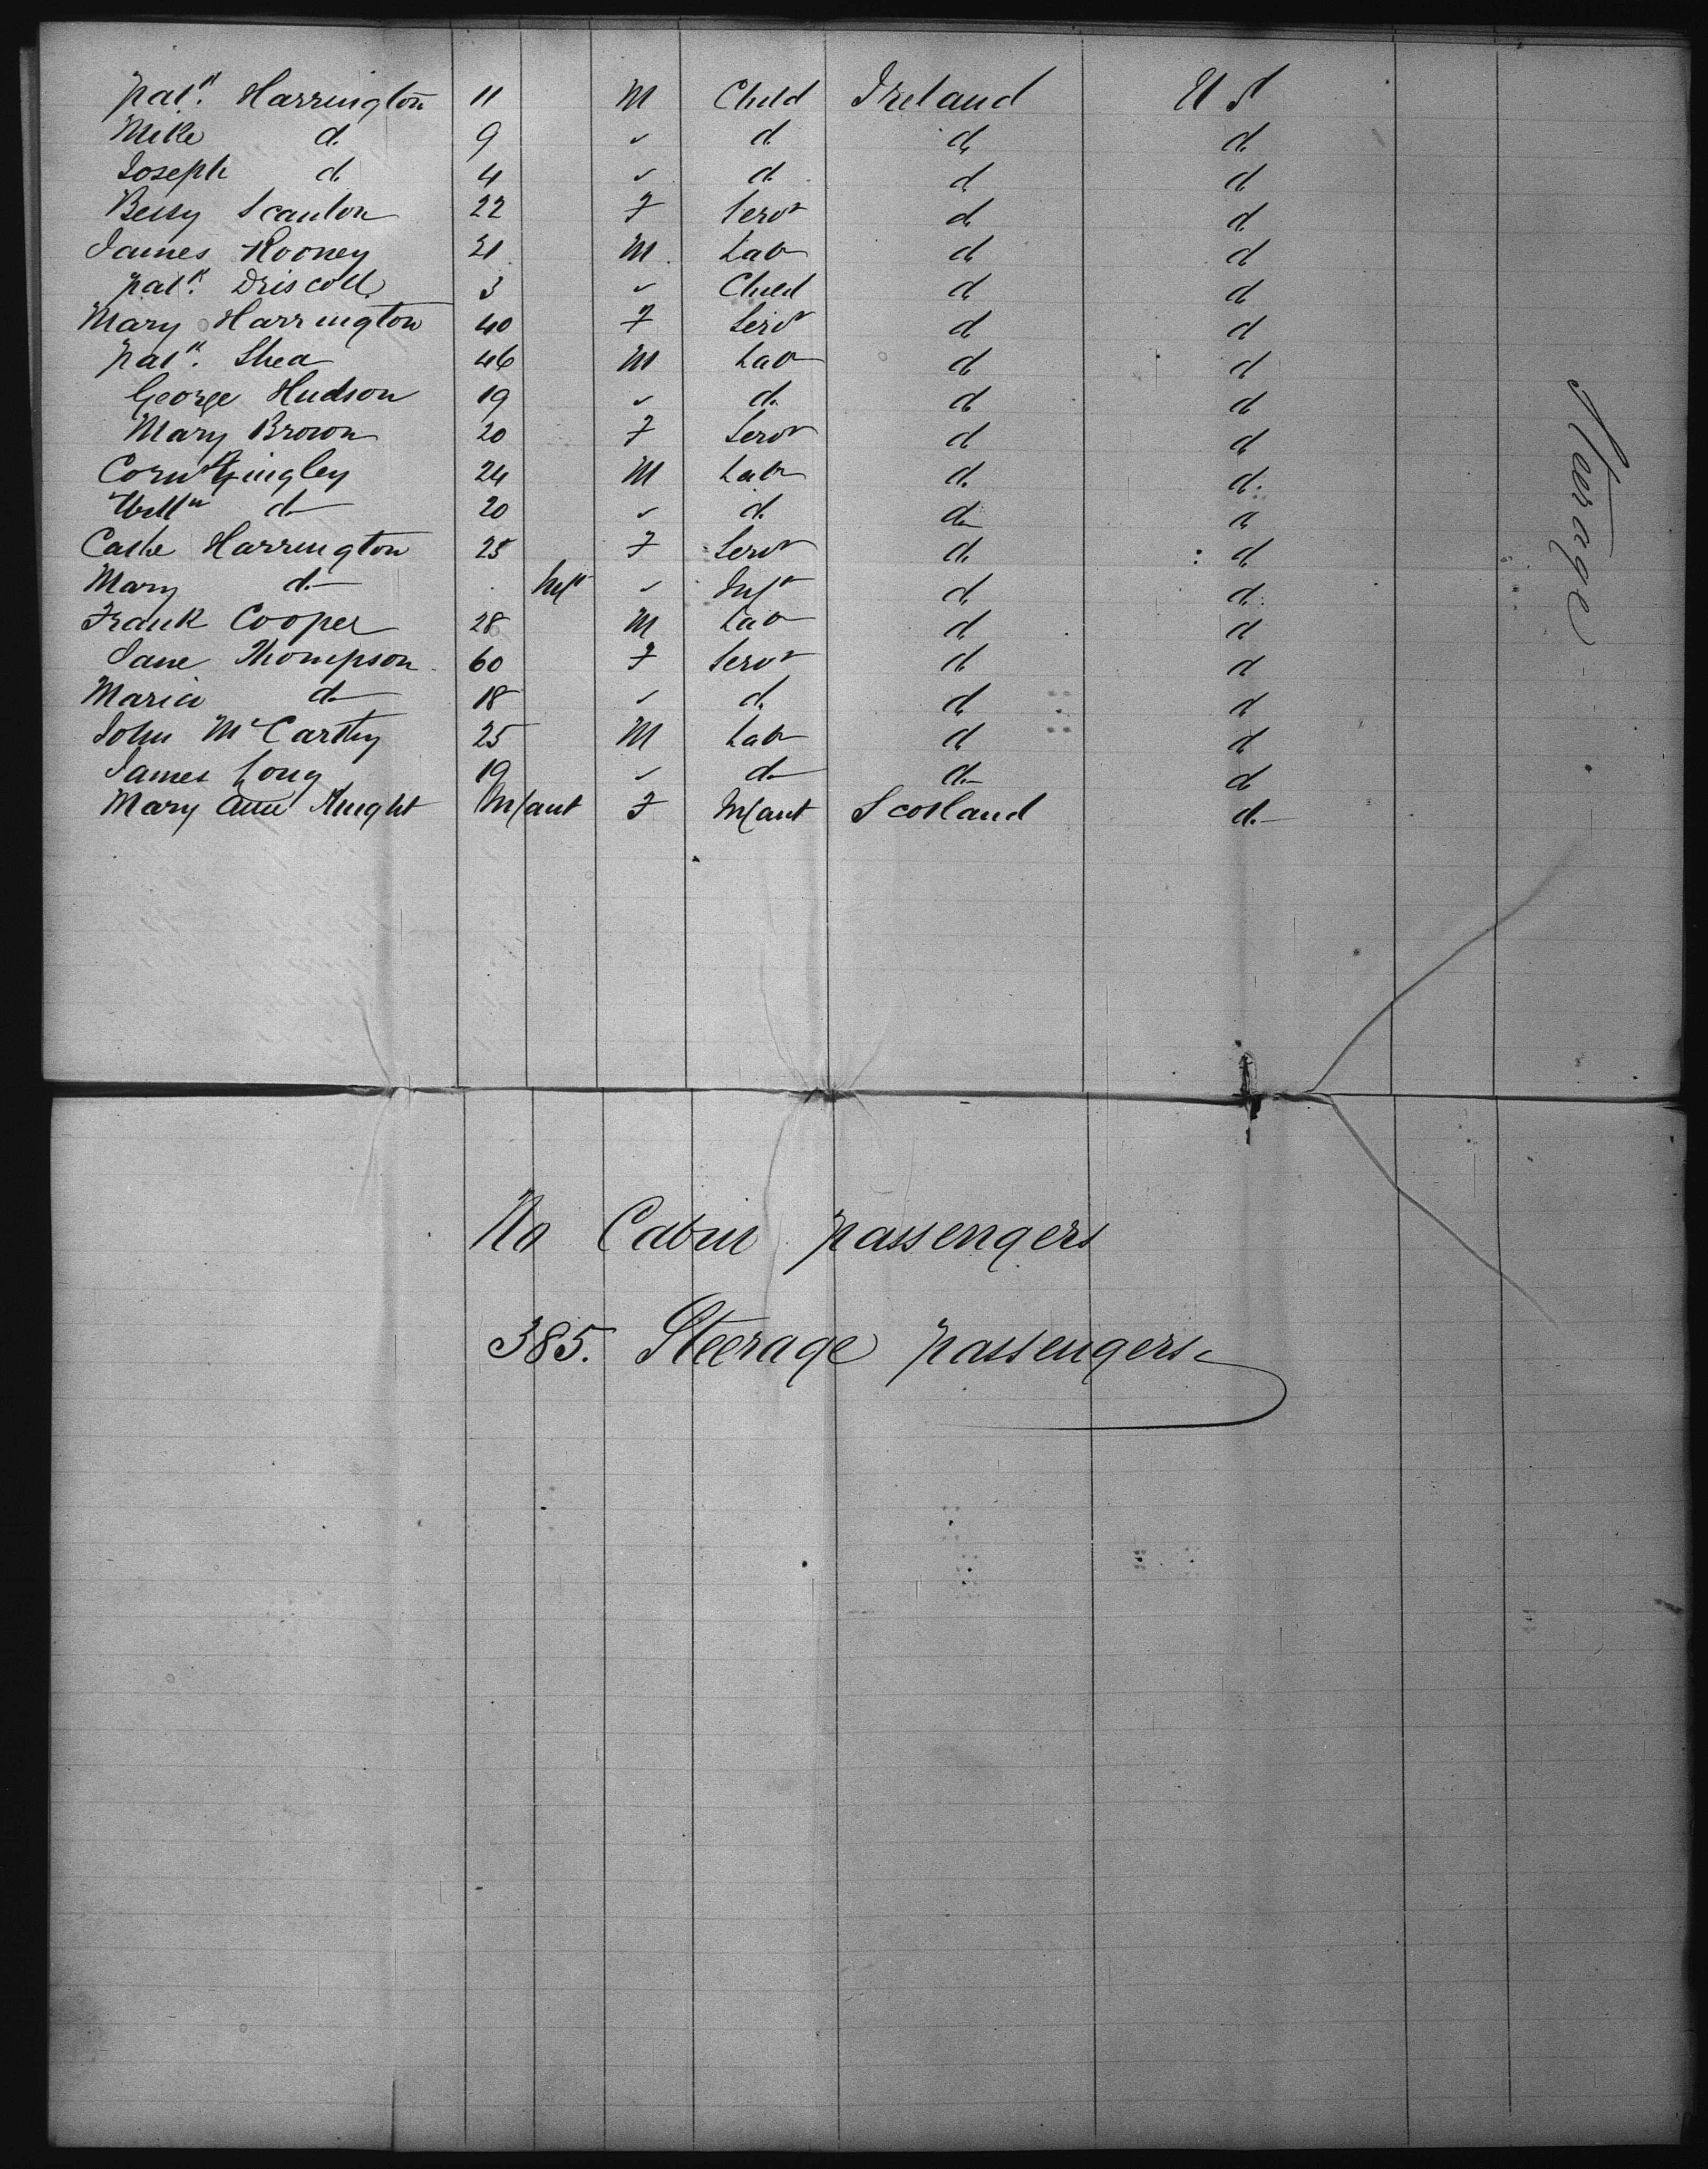 Patk. Harrington 11 M Child Ireland U S
Mike d. 9 " d. d. d.
Joseph d 4 " d. d d
Bessy Scanlon 22 F Servt d. d
James Rooney 21 M Labr d d
Patk. Driscoll 3 " Child d d
Mary Harrington 40 F Servt d d
Patk. Shea 46 M Labr d d
George Hudson 19 " d. d d
Mary Brown 20 F Servt d d
Corns Gingley 24 M Labr d. d.
Willm d 20 " d. d d
Cathe Harrington 25 F Servt d. d.
Mary d Inft " Inft d d.
Frank Cooper 28 M Labr d d
Jane Thompson 60 F Servt d d
Maria d 18 " d. d d
John McCarthy 25 M Labr d d
James Long 19 " d d. d
Mary Ann Knight Infant F Infant Scotland d.
Steerage
No Cabin passengers
385. Steerage passengers